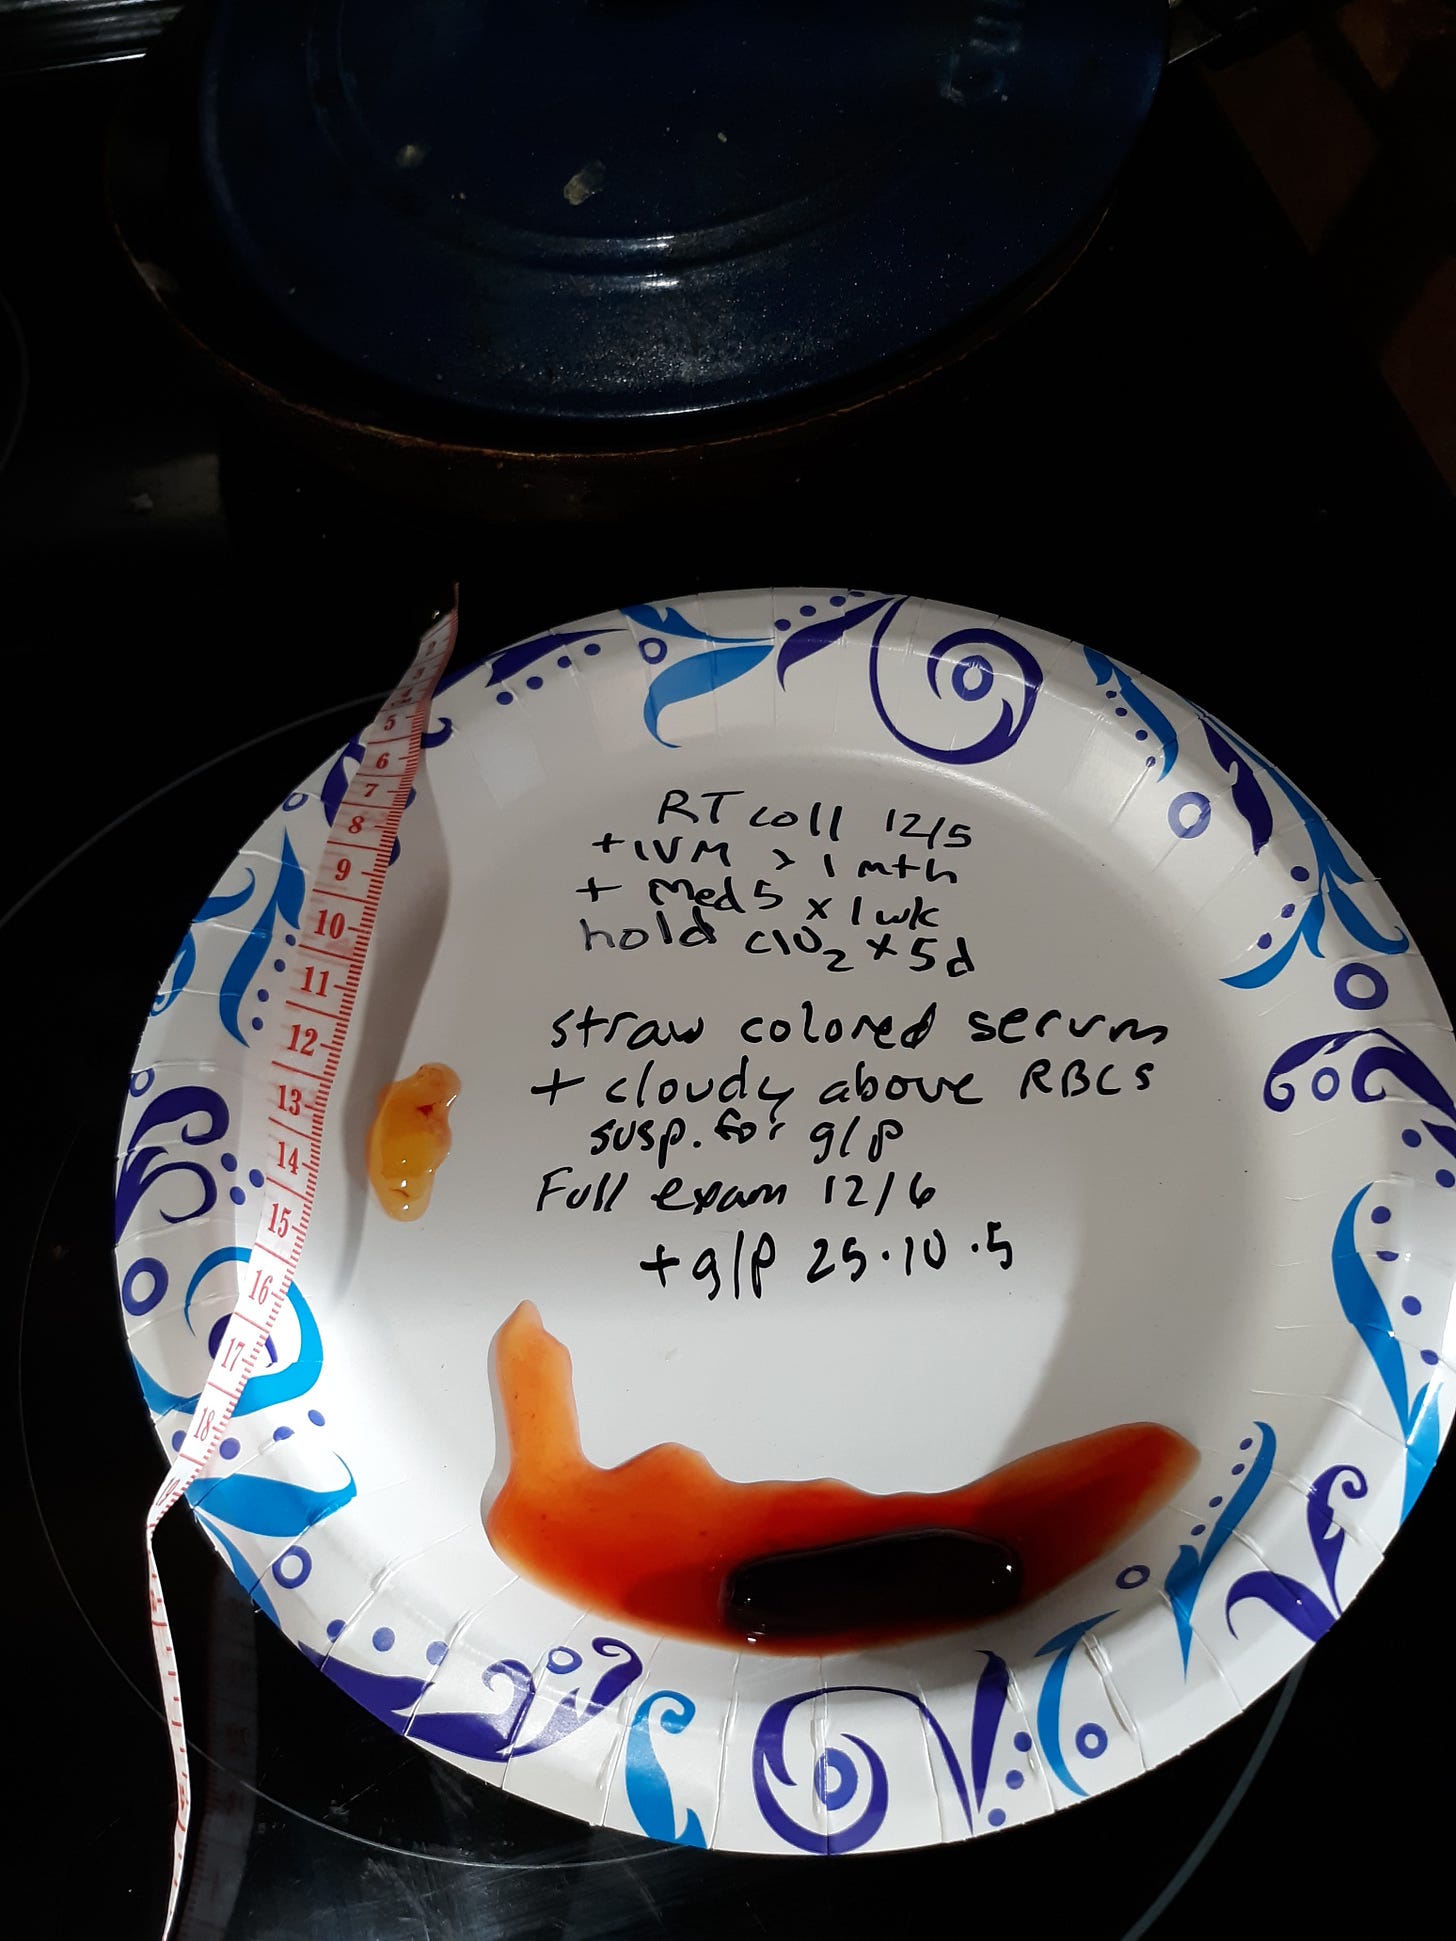 RT coll 12/5
+ IVM > 1 mth
+ Med 5 x 1 wk
hold ClO₂ x 5d
straw colored serum
+ cloudy above RBCs
susp. for g/p
Full exam 12/6
+ g/p 25.10.5
2
3
4
5
6
7
8
9
10
11
12
13
14
15
16
17
18
19